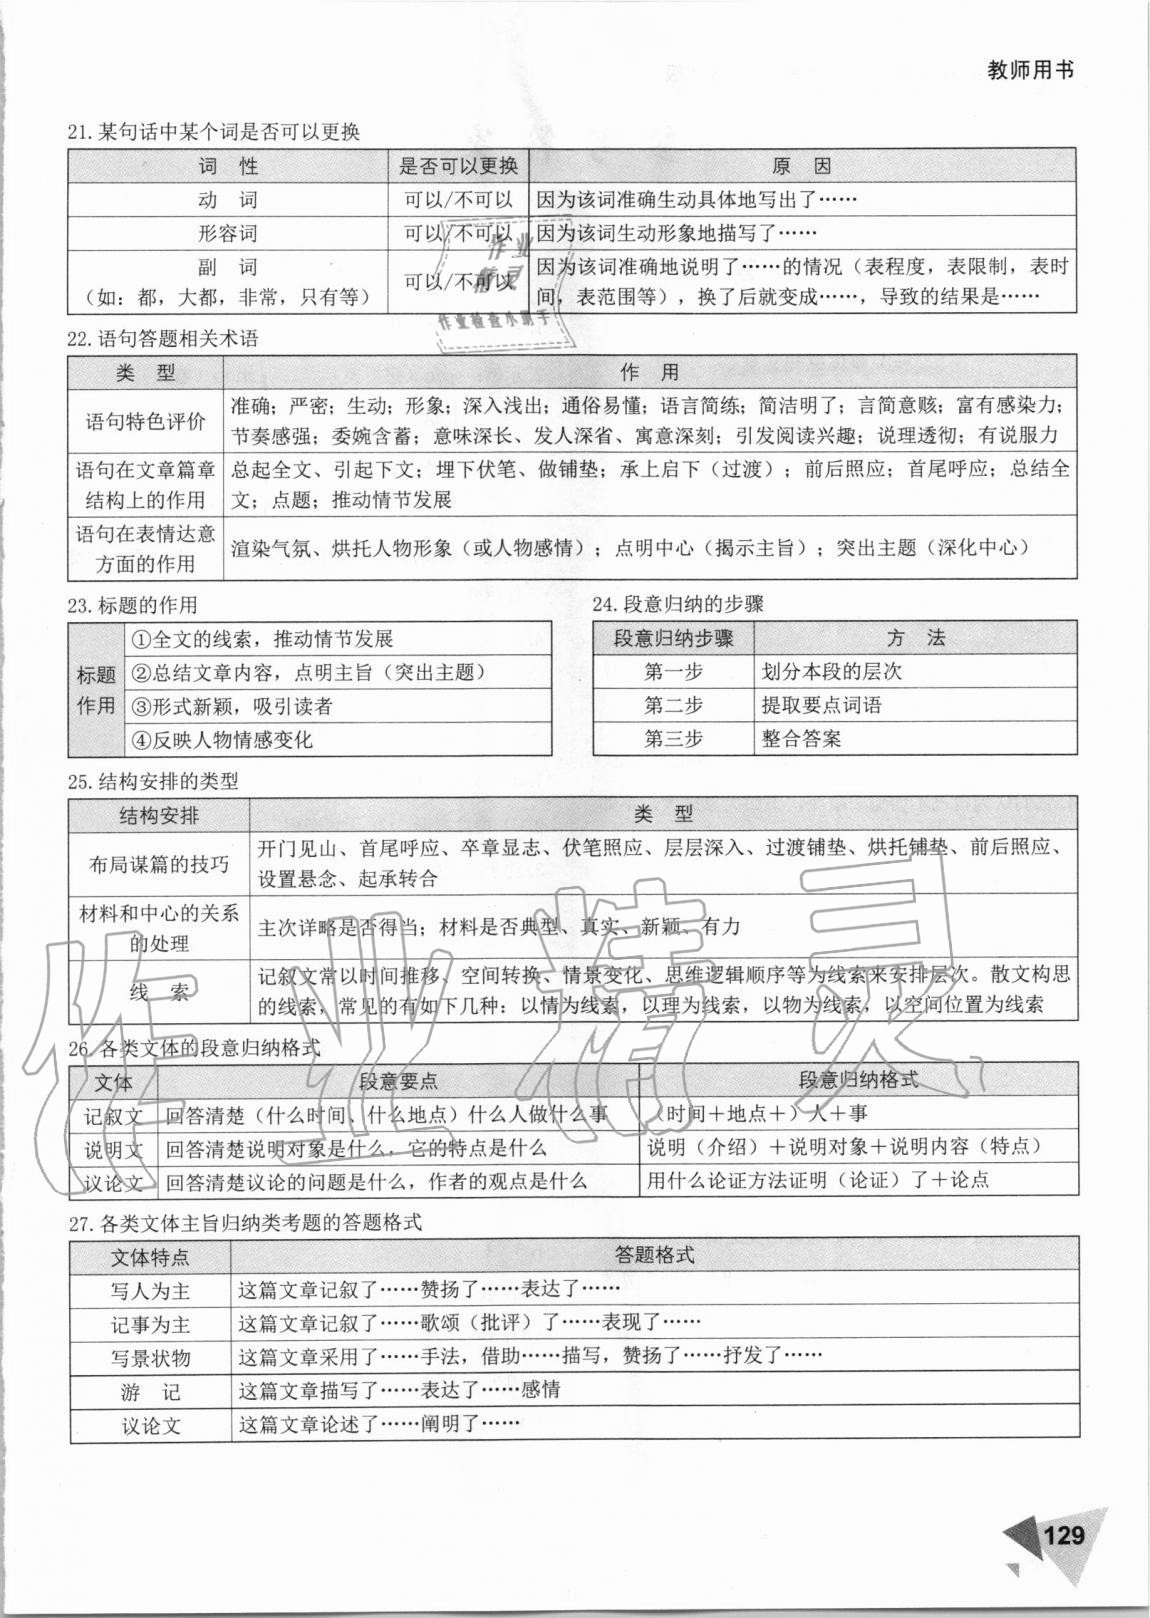 教师用书
21.某句话中某个词是否可以更换
词 性 是否可以更换 原 因
动 词 可以/不可以 因为该词准确生动具体地写出了……
形容词 可以/不可以 因为该词生动形象地描写了……
副 词
（如：都，大都，非常，只有等） 可以/不可以 因为该词准确地说明了……的情况（表程度，表限制，表时
间，表范围等），换了后就变成……，导致的结果是……
22.语句答题相关术语
类 型 作 用
语句特色评价 准确；严密；生动；形象；深入浅出；通俗易懂；语言简练；简洁明了；言简意赅；富有感染力；
节奏感强；委婉含蓄；意味深长、发人深省、寓意深刻；引发阅读兴趣；说理透彻；有说服力
语句在文章篇章 总起全文、引起下文；埋下伏笔、做铺垫；承上启下（过渡）；前后照应；首尾呼应；总结全
结构上的作用 文；点题；推动情节发展
语句在表情达意
方面的作用 渲染气氛、烘托人物形象（或人物感情）；点明中心（揭示主旨）；突出主题（深化中心）
23.标题的作用
标题
作用
①全文的线索，推动情节发展
②总结文章内容，点明主旨（突出主题）
③形式新颖，吸引读者
④反映人物情感变化
24.段意归纳的步骤
段意归纳步骤 方 法
第一步 划分本段的层次
第二步 提取要点词语
第三步 整合答案
25.结构安排的类型
结构安排 类 型
布局谋篇的技巧 开门见山、首尾呼应、卒章显志、伏笔照应、层层深入、过渡铺垫、烘托铺垫、前后照应、
设置悬念、起承转合
材料和中心的关系
的处理 主次详略是否得当；材料是否典型、真实、新颖、有力
线 索 记叙文常以时间推移、空间转换、情景变化、思维逻辑顺序等为线索来安排层次。散文构思
的线索，常见的有如下几种：以情为线索，以理为线索，以物为线索，以空间位置为线索
26.各类文体的段意归纳格式
文体 段意要点 段意归纳格式
记叙文 回答清楚（什么时间、什么地点）什么人做什么事 （时间＋地点＋）人＋事
说明文 回答清楚说明对象是什么，它的特点是什么 说明（介绍）＋说明对象＋说明内容（特点）
议论文 回答清楚议论的问题是什么，作者的观点是什么 用什么论证方法证明（论证）了＋论点
27.各类文体主旨归纳类考题的答题格式
文体特点 答题格式
写人为主 这篇文章记叙了……赞扬了……表达了……
记事为主 这篇文章记叙了……歌颂（批评）了……表现了……
写景状物 这篇文章采用了……手法，借助……描写，赞扬了……抒发了……
游 记 这篇文章描写了……表达了……感情
议论文 这篇文章论述了……阐明了……
129
作业
精灵
作业检查小助手
作业精灵